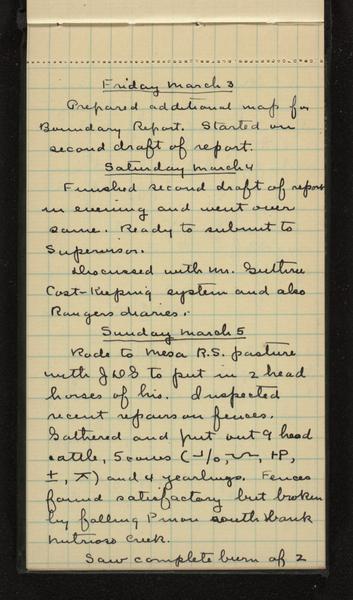 Friday March 3
Prepared additional map for
Boundary Report. Started on
second draft of report.
Saturday March 4
Finished second draft of report
in evening and went over
same. Ready to submit to
Supervisor.
Discussed with Mr. Guthrie
Cost-Keeping system and also
Rangers diaries.
Sunday March 5
Rode to Mesa R.S. pasture
with JDG to put in 2 head
horses of his. Inspected
recent repairs on fences.
Gathered and put out 9 head
cattle, 5 cows (
and 4 yearlings. Fences
found satisfactory but broken
by falling Pinon south bank
Nutrioso Creek.
Saw complete burn of 2